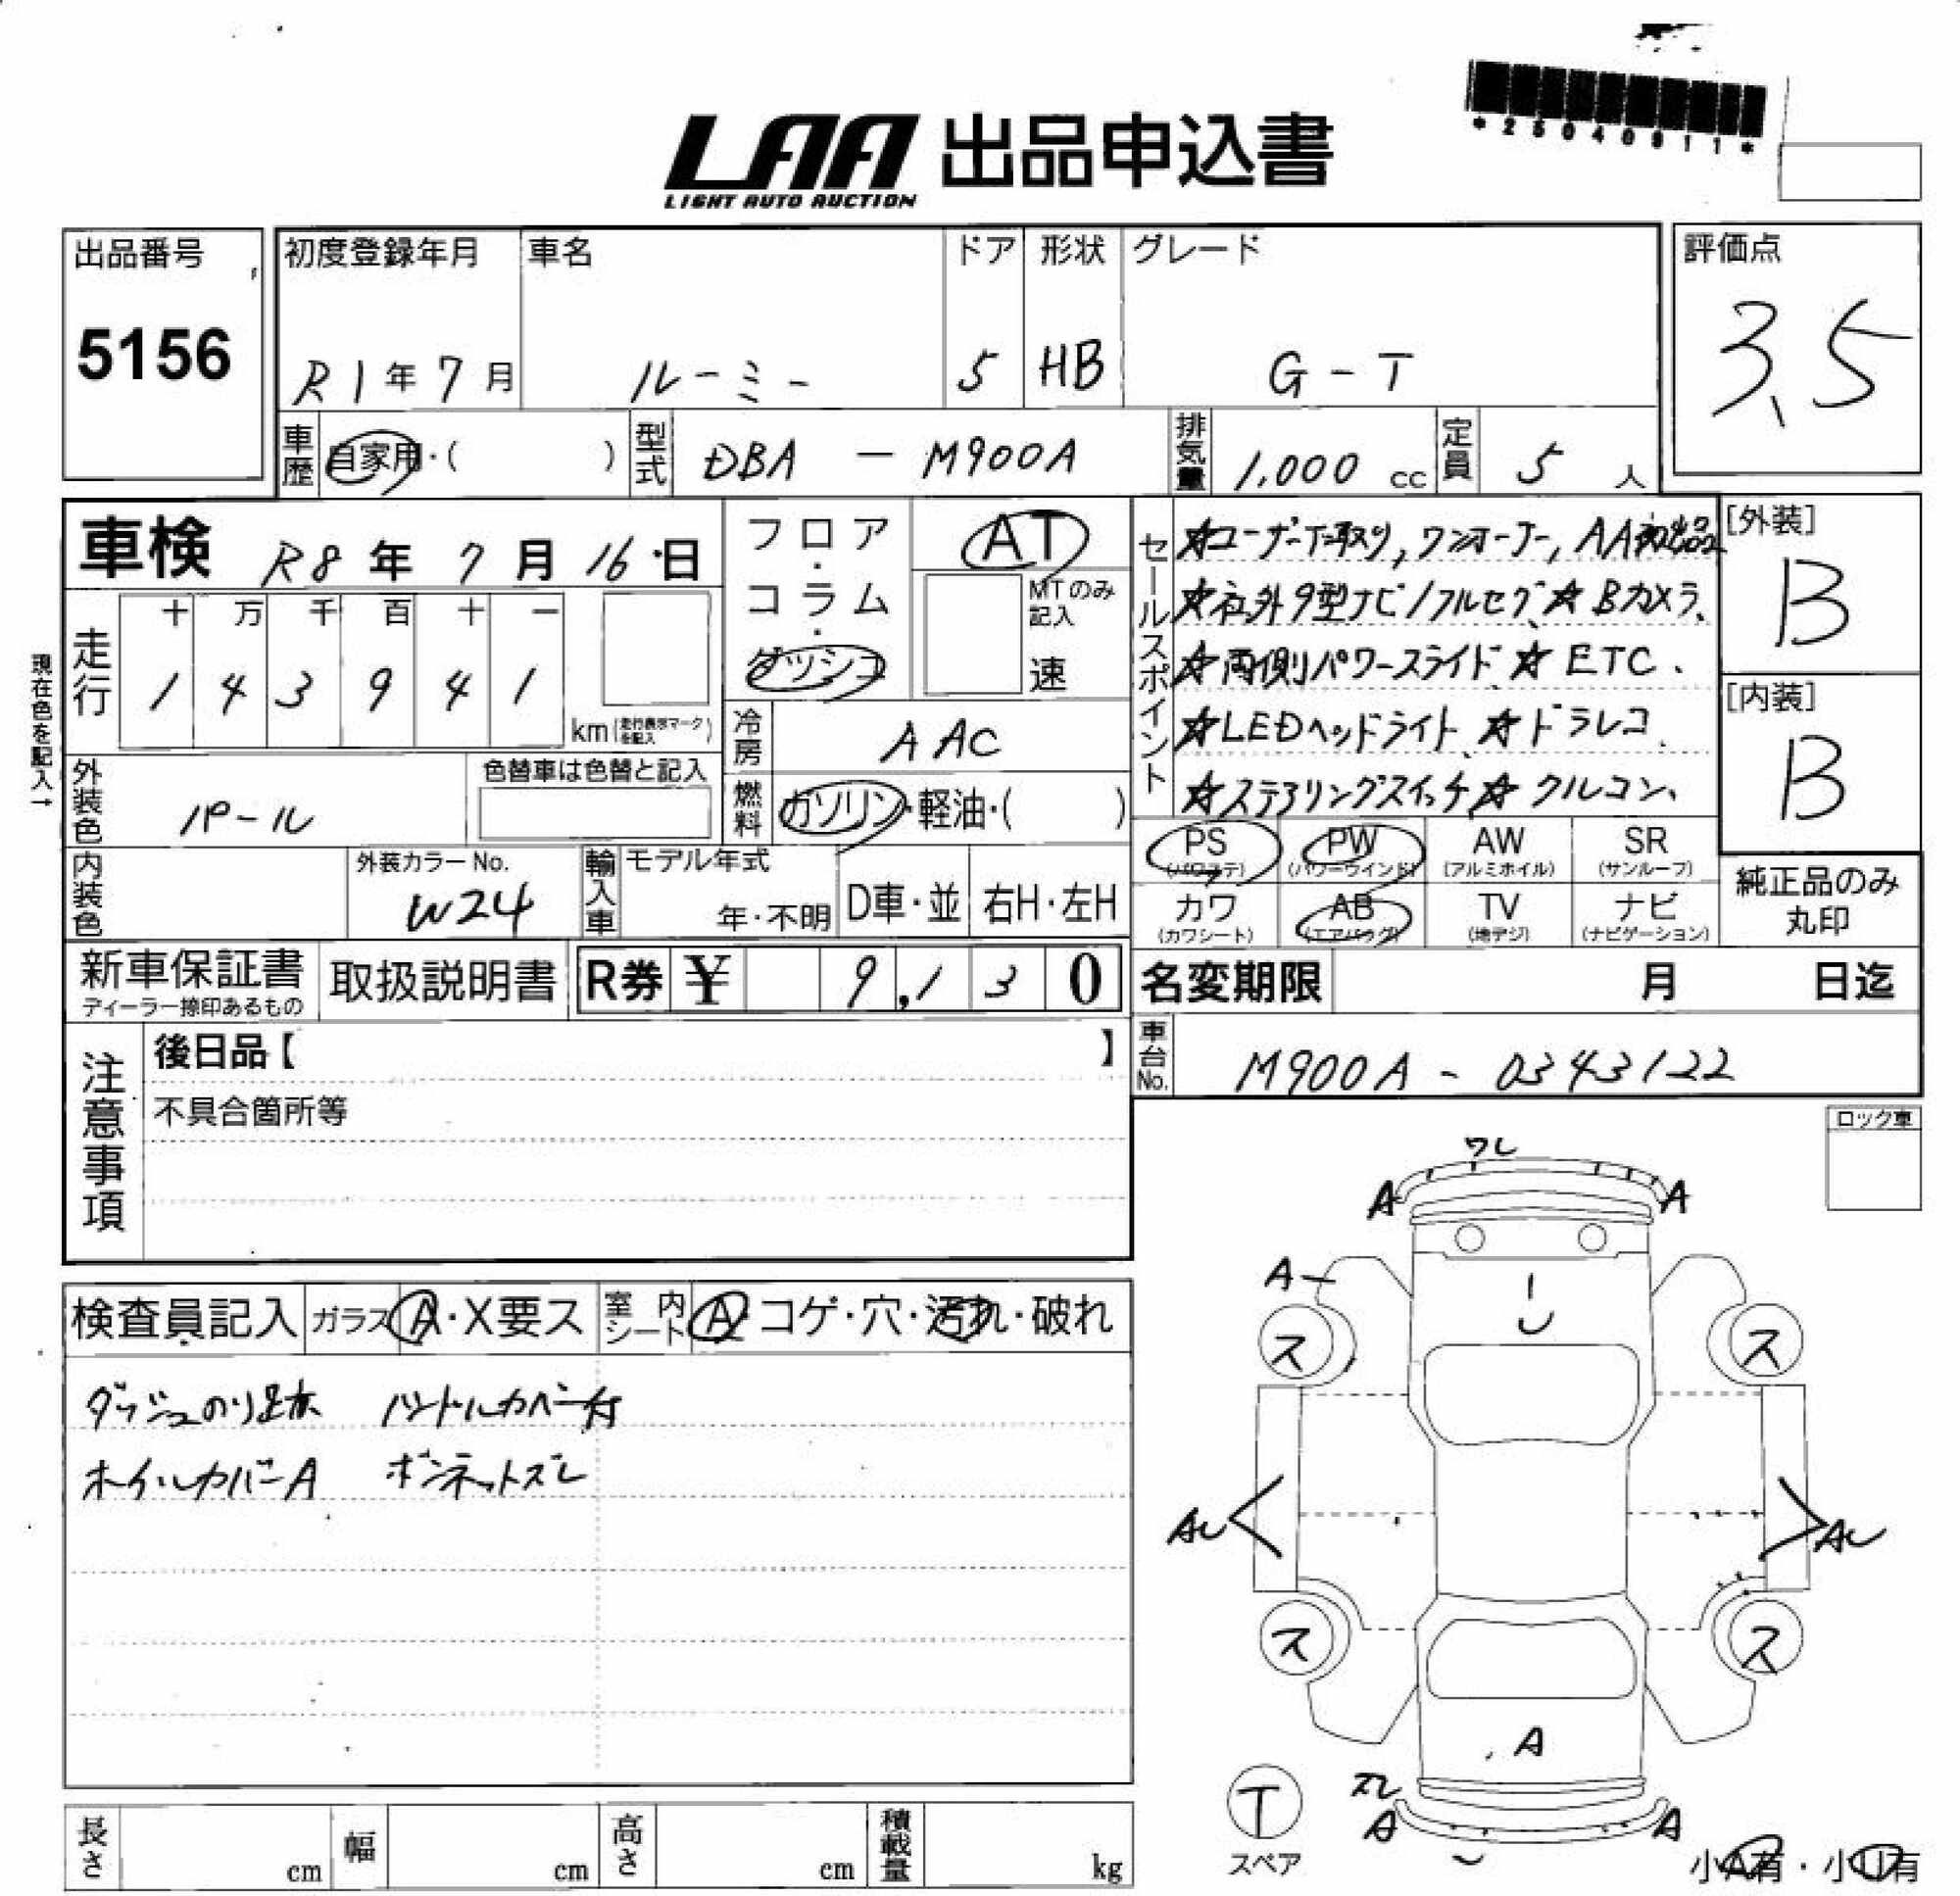 *25040911*
LAA 出品申込書
LIGHT AUTO AUCTION
出品番号 初度登録年月 車名 ドア 形状 グレード 評価点
5156 R1年7月 ルーミー 5 HB G-T 3.5
車歴 自家用・( ) 型式 DBA - M900A 排気量 1,000 cc 定員 5 人
車検 R8年7月16日
フロア・コラム・ダッシュ
AT
MTのみ記入
速
セールスポイント
★ユーザー下取り,ワンオーナー,AA初出品
★社外9型ナビ/フルセグ、★Bカメラ、
★両側パワースライド★ETC、
★LEDヘッドライト、★ドラレコ、
★ステアリングスイッチ★クルコン、
[外装]
B
[内装]
B
現在色を記入→
走行 十 万 千 百 十 一
1 4 3 9 4 1 km(走行表示マークを記入)
冷房 AAC
外装色 パール 色替車は色替と記入
燃料 ガソリン・軽油・( )
PS AW SR PW
(パワステ) (パワーウインド) (アルミホイル) (サンルーフ)
カワ AB TV ナビ
(カワシート) (エアバッグ) (地デジ) (ナビゲーション)
純正品のみ
丸印
内装色 外装カラーNo. W24 輸入車 モデル年式 年・不明 D車・並 右H・左H
新車保証書 取扱説明書 R券 ¥ 9,130 名変期限 月 日迄
ディーラー捺印あるもの
車台No. M900A - 0343122
注意事項
後日品【 】
不具合箇所等
ロック車
検査員記入 ガラス A・X要ス 室内シート A・コゲ・穴・汚れ・破れ
ダッシュのり跡 ハンドルカバー付
ホイルカバーA ボンネットズレ
ワレ
A A
A
ス ス
AU AU
ス ス
A
ズレ
A A
T
スペア
小A有・小U有
長さ cm 幅 cm 高さ cm 積載量 kg